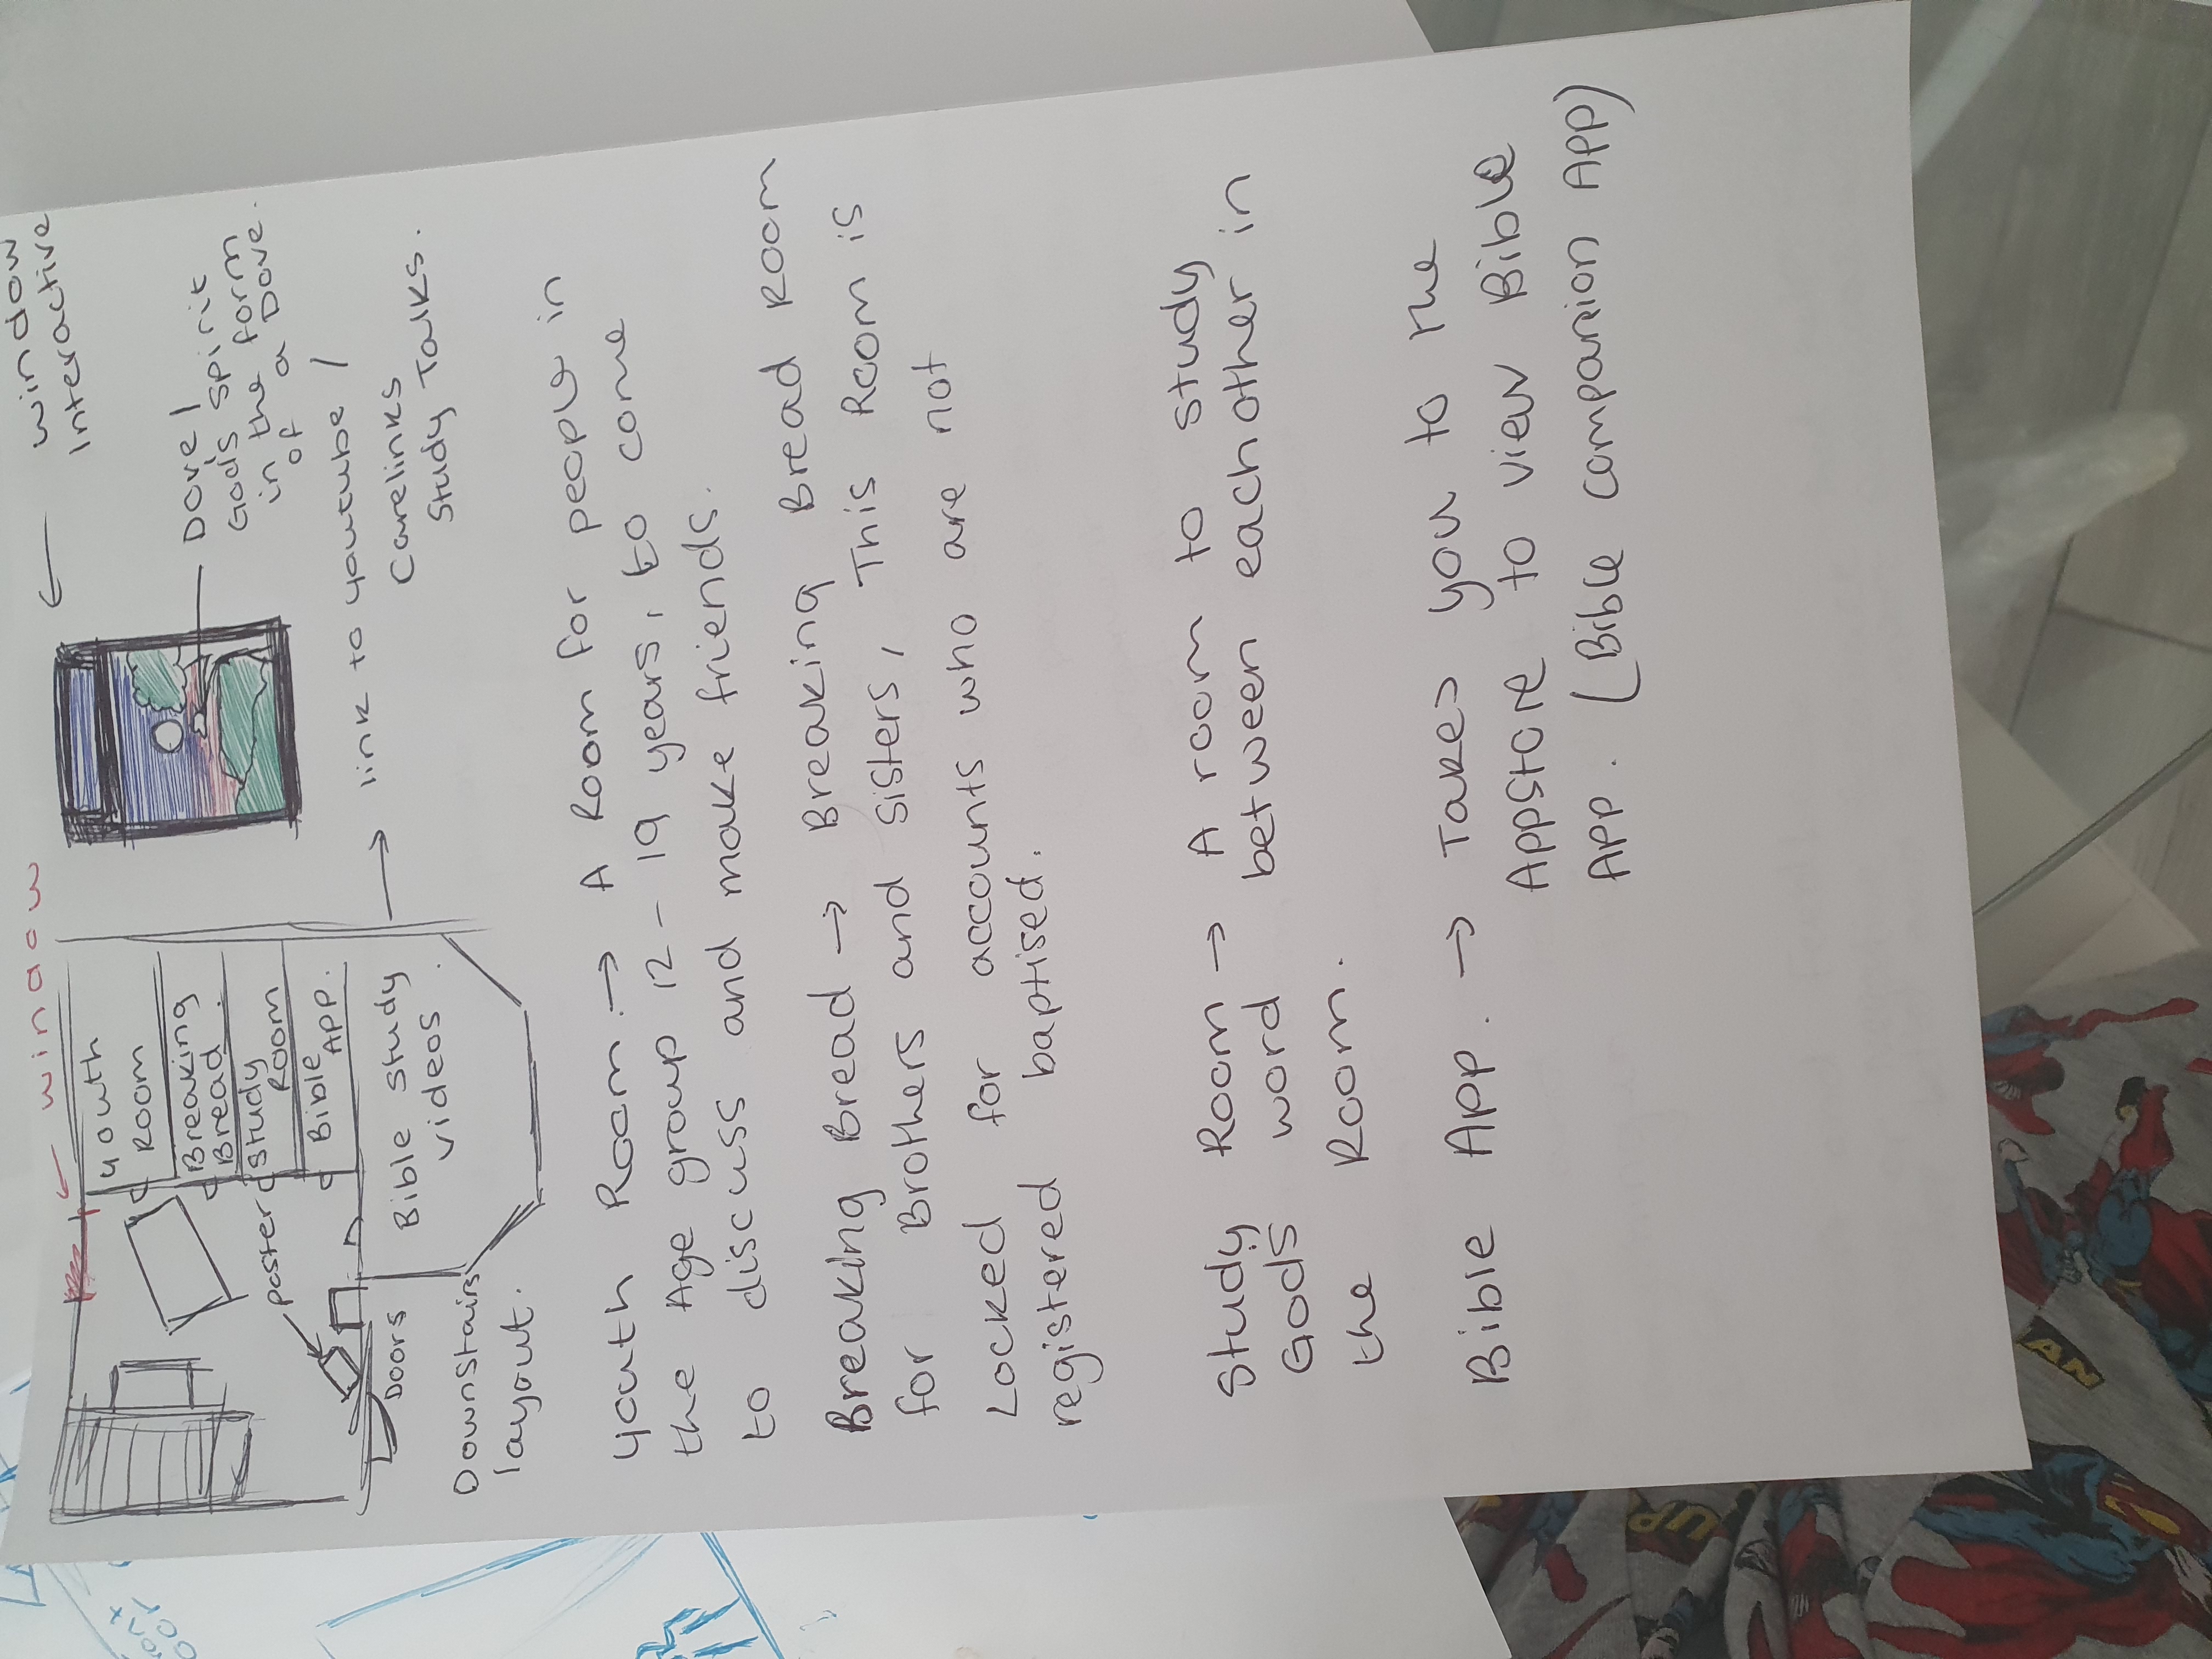 window
window
Interactive
Dove /
God's spirit
in the form
of a
Dove.
Youth
Room
Breaking
Bread.
Study
Room
Bible
App.
poster
Doors
Bible study
videos.
link to youtube /
Carelinks
Study Talks.
Downstairs
layout.
Youth Room. → A Room for people in
the Age group 12 - 19 years, to come
to discuss and make friends.
Breaking Bread → Breaking Bread Room
for Brothers and sisters, This Room is
Locked for accounts who are not
registered baptised.
Study Room → A room to study
Gods word between eachother in
the Room.
Bible App. → Takes you to the
Appstore to view Bible
App. (Bible companion App)
UP
AN